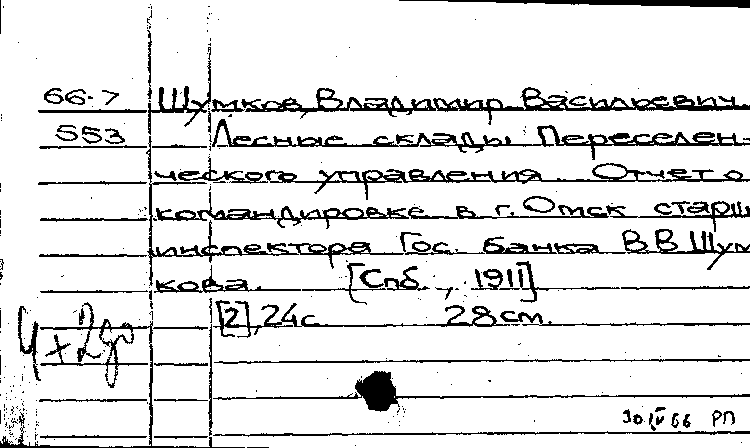 66-7 Шумков, Владимир Васильевич
553 Лесные склады Переселен-
ческого управления. Отчет о
командировке в г. Омск старш.
инспектора Гос. банка В В Шум
кова. [Спб., 1911]
[2], 24с. 28см.
4+2
30 IV 66 РП